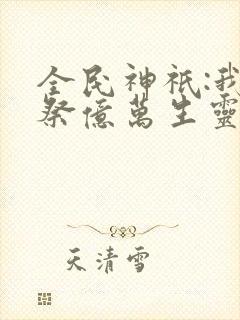 全民神祇:我
祭億萬生靈
天清雪